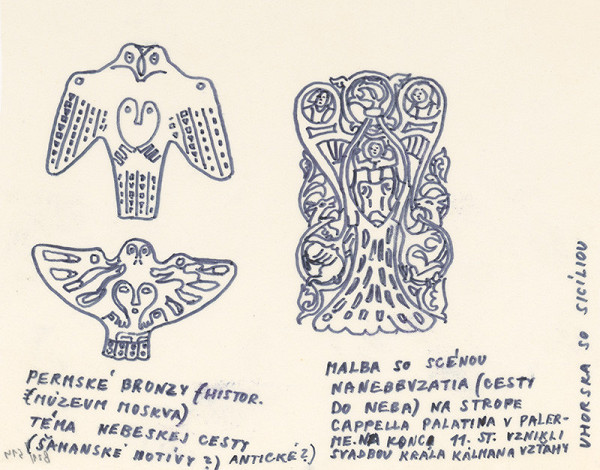 PERMSKÉ BRONZY (HISTOR.
(MÚZEUM MOSKVA)
TÉMA NEBESKEJ CESTY
(ŠAMANSKÉ MOTÍVY?) ANTICKÉ?)
MALBA SO SCÉNOU
NANEBBVZATIA (CESTY
DO NEBA) NA STROPE
CAPPELLA PALATINA V PALER-
ME. NA KONCO 11. ST. VZNIKLI
SVADBOU KRÁLA KÁLMANA VZŤAHY
UHORSKA SO SICÍLIOU